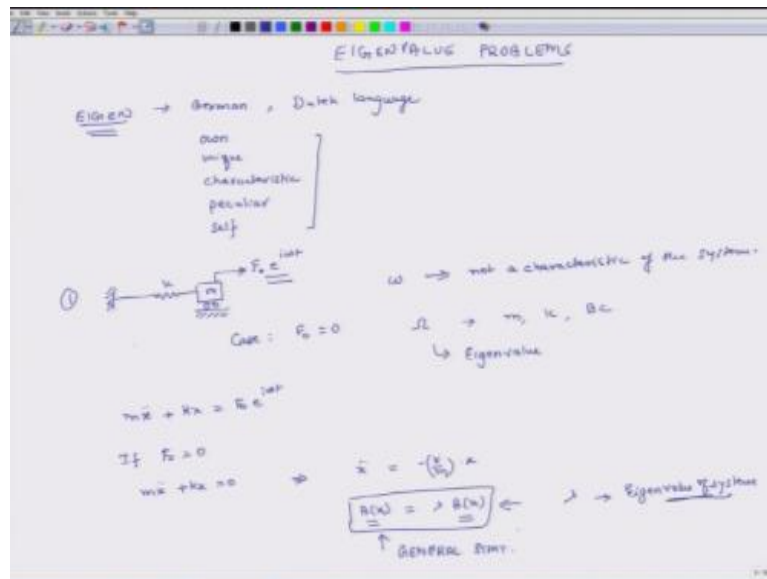 EIGENVALUE PROBLEMS
EIGEN → German, Dutch language
own
unique
characteristic
peculiar
self
① k m F₀ e^{iωt}
ω → not a characteristic of the system.
Case : F₀ = 0 Ω → m, k, BC
↳ Eigenvalue
mẍ + kx = F₀ e^{iωt}
If F₀ = 0
mẍ + kx = 0 ⇒ ẍ = -(k/m) · x
A(x) = λ B(x) ← λ → Eigenvalue of system
↑ GENERAL STMT.